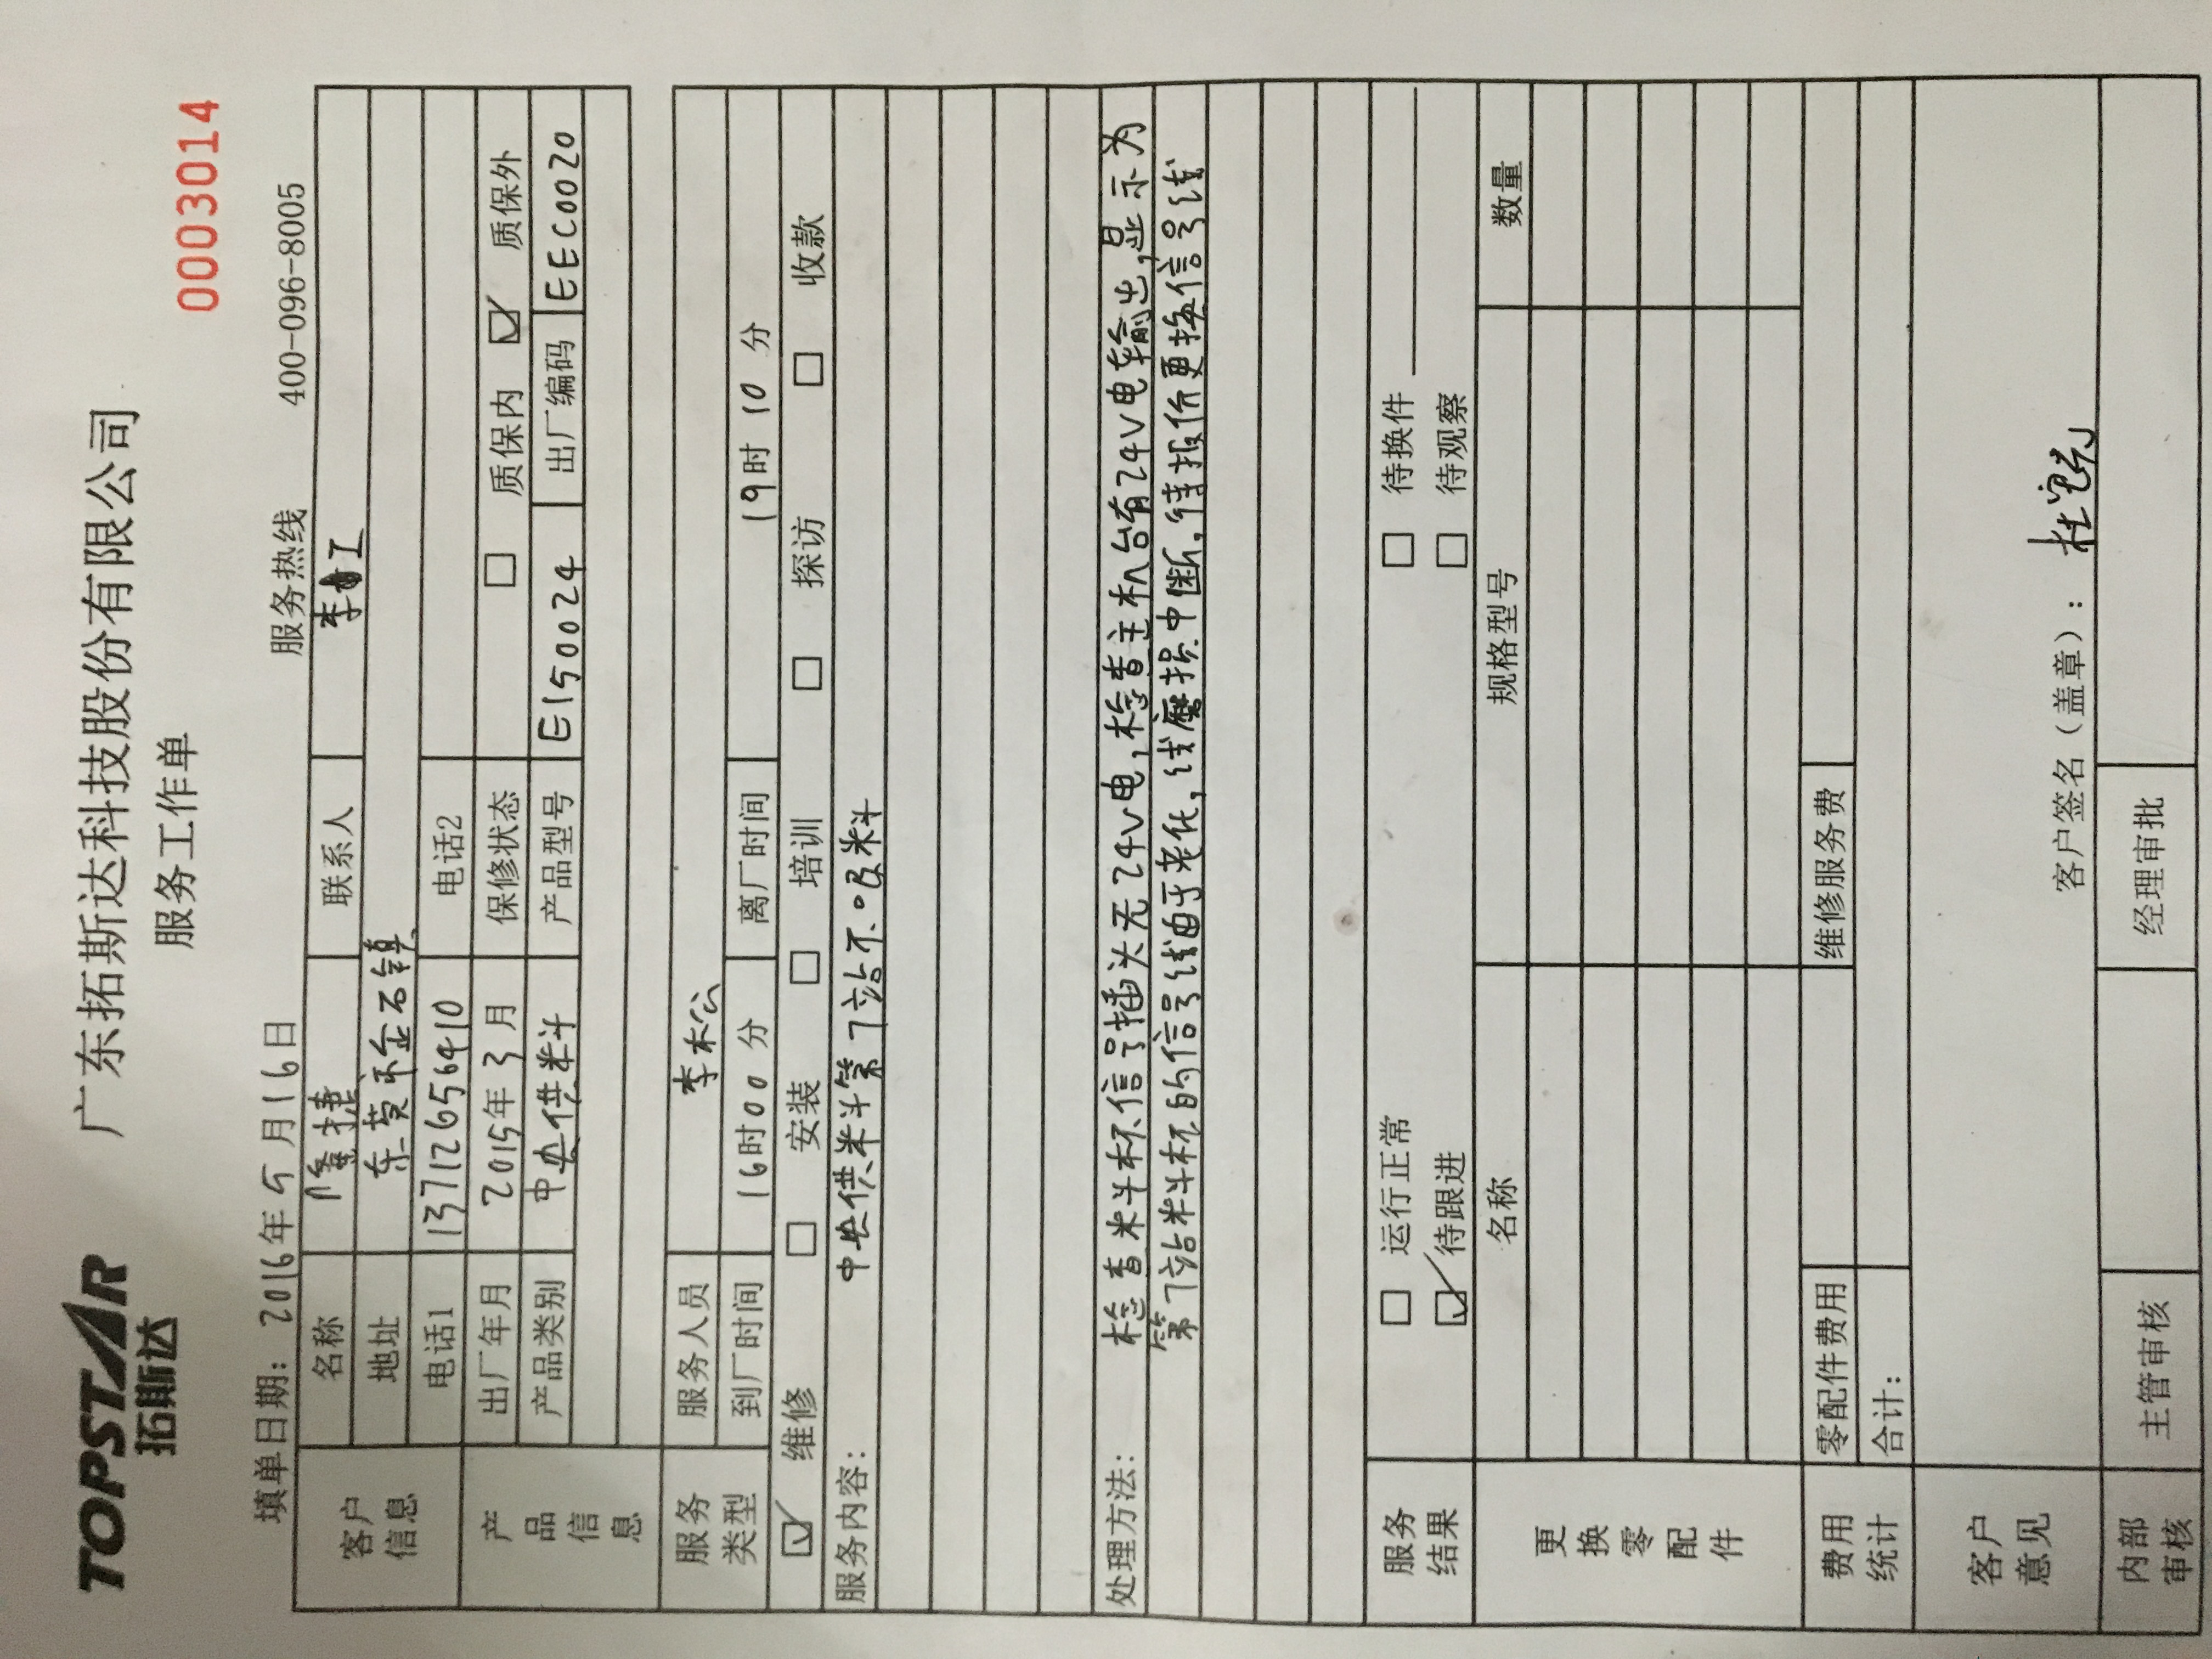 TOPSTAR 拓斯达
广东拓斯达科技股份有限公司
服务工作单
0003014
填单日期：2016年5月16日 服务热线 400-096-8005
客户信息
名称 隆捷 联系人 李工
地址 东莞市企石镇
电话1 13712656410 电话2
产品信息
出厂年月 2015年3月 保修状态 □ 质保内 ☑ 质保外
产品类别 中央供料 产品型号 E150024 出厂编码 EEC0020
服务类型
服务人员 李松公
到厂时间 16时00分 离厂时间 19时10分
☑ 维修 □ 安装 □ 培训 □ 探访 □ 收款
服务内容： 中央供料第7站不吸料
处理方法： 检查料杯信号插头无24V电，检查主机台有24V电输出，显示为
第7站料杯的信号线由于老化，线磨损中断，待报价更换信号线
服务结果
□ 运行正常 □ 待换件
☑ 待跟进 □ 待观察
更换零配件
名称 规格型号 数量
费用统计
零配件费用 维修服务费
合计：
客户意见
客户签名（盖章）：
内部审核
主管审核 经理审批